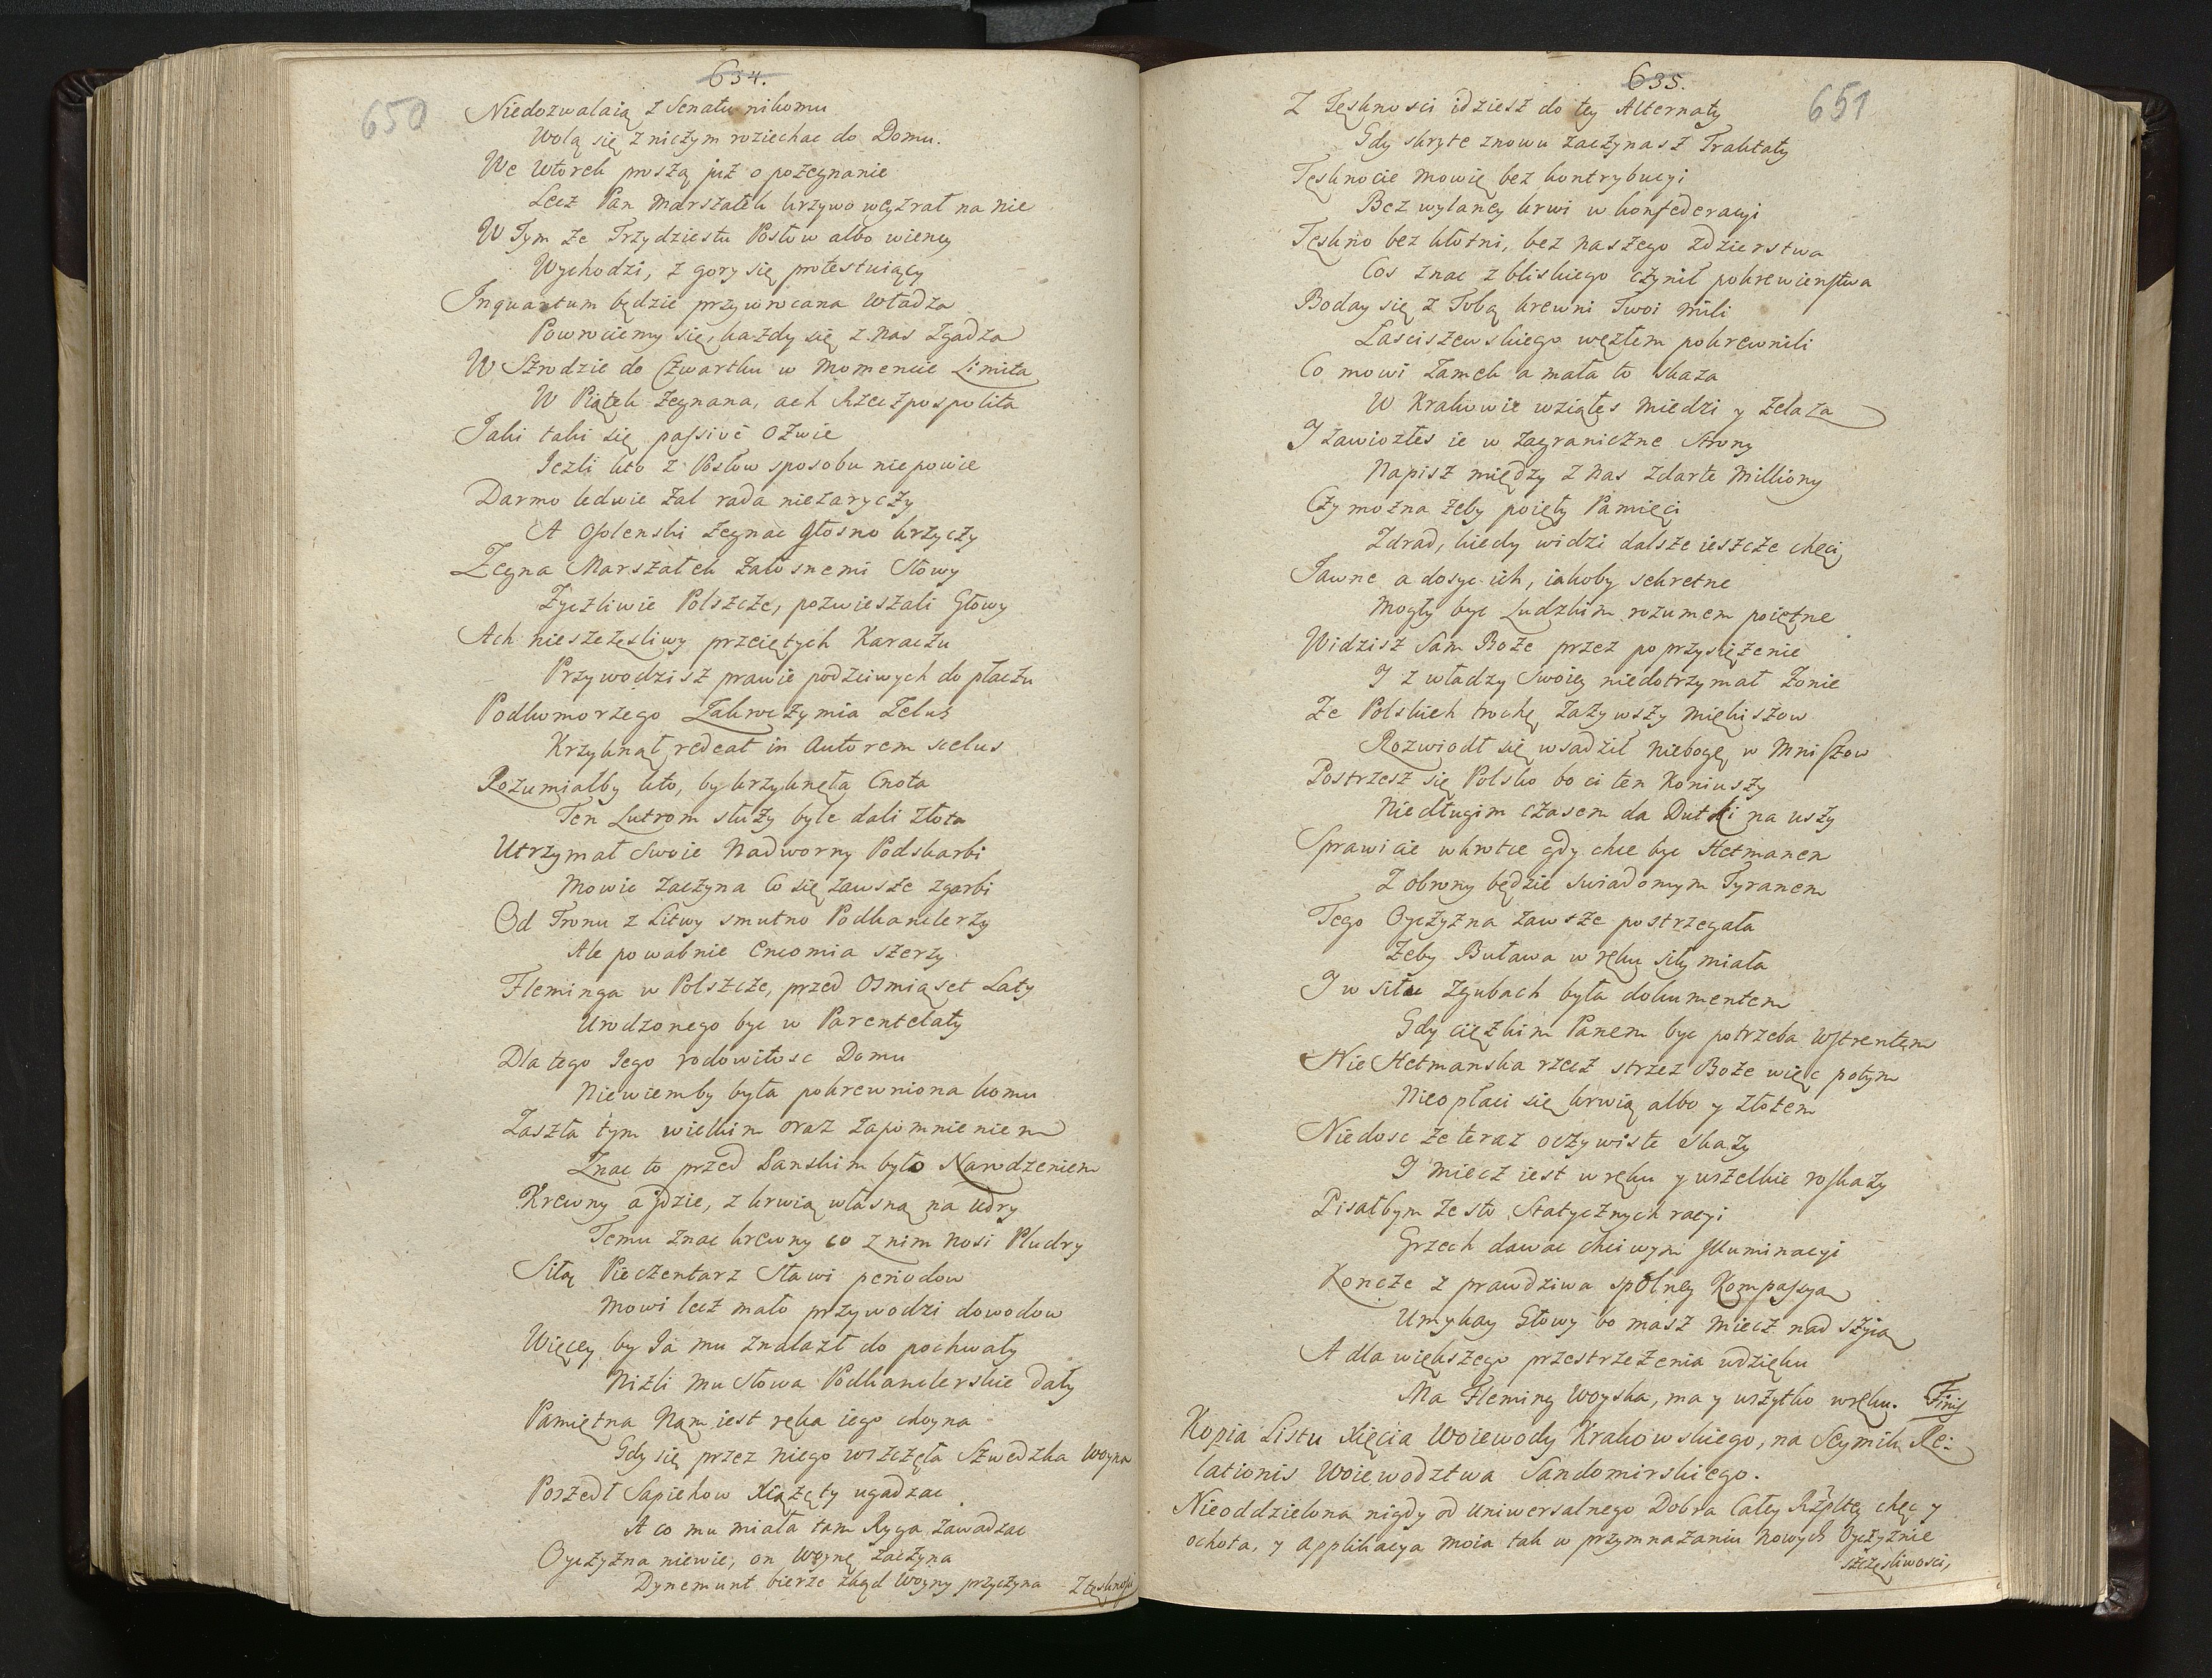 634.
650
Niedozwalaią z Senatu nikomu
Wolą się z niczym roziechac do Domu.
We wtorek proszą już o pożegnanie
Lecz Pan Marszałek krzywo weyzrał na nie
W Tym ze Trzydziestu Posłow albo więcey
Wychodzi, z gory się protestuiący
Inquantum będzie przywrocana Władza
Powrociemy się, każdy się z nas zgadza
W Szrodzie do Czwartku w momencie Limita
W Piątek żegnana, ach Rzeczpospolita
Jaki taki się passivè ozwie
Jezli kto z Posłow sposobu nie powie
Darmo ledwie żal rada niezaryczy
A Osolenski żegnac głosno krzyczy
Żegna Marszałek żałosnemi Słowy
Życzliwie Polszcze, pozwieszali Głowy
Ach nieszczęsliwy przeciętych Karaczu
Przywodzisz prawie podzciwych do płaczu
Podkomorzego Zakroczymia Zelus
Krzyknął, redeat in Autorem scelus
Rozumiałby kto, by krzyknęła Cnota
Ten Lutrom służy byle dali złota
Utrzymał swoie Nadworny Podskarbi
Mowic zaczyna Co się zawsze zgarbi
Od Tronu z Litwy smutno Podkanclerzy
Ale powabnie Encomia szerzy
Fleminga w Polszcze, przed Osmiąset Laty
Urodzonego byc w Parentelaty
Dla tego Jego rodowitosc Domu
Niewiemby była pokrewniona komu
Zaszła tym wielkim oraz zapomnieniem
Znac to przed Panskim było Narodzeniem
Krewny a jdzie, z krwią własną na udry
Temu znac krewny co z nim nosi Pludry
Siłą Pieczentarz Stawi periodow
Mowi lecz mało przywodzi dowodow
Więcey by Ja mu znalazł do pochwały
Niżli mu słowa Podkanclerskie dały
Pamiętna Nam iest ręka iego choyna
Gdy się przez niego wszczęła Szwedzka Woyna
Poszedł Sapiehow Xiążęty ugadzac
A co mu miała tam Ryga zawadzac
Oyczyzna niewie, on Woynę zaczyna
Dynemunt bierze zkąd Woyny przyczyna
Z tesknosci
635.
651
Z Tęsknosci idziesz do tey Alternaty
Gdy skryte znowu zaczynasz Traktaty
Tęsknocie mowię bez kontrybucyi
Bez wylaney krwi w konfederacyi
Tęskno bez kłotni, bez naszego zdzierstwa
Cos znac z bliskiego czynił pokrewienstwa
Boday się z Tobą krewni Twoi mili
Łasciszewskiego węzłem pokrewnili
Co mowi Zamek a mała to skaza
W Krakowie wziąłes miedzi y żelaza
I zawiozłes ie w zagraniczne Strony
Napisz między z nas zdarte Milliony
Czy można żeby poięty Pamięci
Zdrad, kiedy widzi dalsze ieszcze chęci
Jawne a dosyc ich, iakoby sekretne
Mogły byc Ludzkim rozumem poiętne
Widzisz Sam Boże przez poprzysiężenie
I z władzy Swoiey niedotrzymał Żonie
Że Polskich trochę zażywszy mięKiszow
Rozwiodł się wsadził niebogę w Mniszow
Postrzesz się Polsko bo ci ten Koniuszy
Niedługim czasem da Dutki na uszy
Sprawicie wkrotce gdy chce byc Hetmanem
Z obrony będzie swiadomym Tyranem
Tego Oyczyzna zawsze postrzegała
Żeby Buława w ręku siły miała
I w siłac zgubach była dokumentem
Gdy cięzkim Panem byc potrzeba Wstrentem
Nie Hetmanska rzecz strzez Boże więc potym
Nieopłaci się krwią albo y złotem
Niedosc że teraz oczywiste skazy
I miecz iest w ręku y wszelkie roskazy
Pisałbym ze sto Statycznych racyi
Grzech dawac chciwym Illuminacyi
Koncze z prawdziwa spolney Kompassya
Umykay Głowy bo masz miecz nad szyia
A dla większego przestrzeżenia wdzięku
Ma Fleming Woyska, ma y wszytko w ręku. Finis
Kopia Listu Xięcia Woiewody Krakowskiego, na Seymik Re:
lationis Woiewodztwa Sandomirskiego.
Nieoddzielona nigdy od Uniwersalnego Dobra Całey Rzpltey chęc y
ochota, y applikacya moia tak w przymnażaniu nowych Oyczyznie
szczęsliwosci,